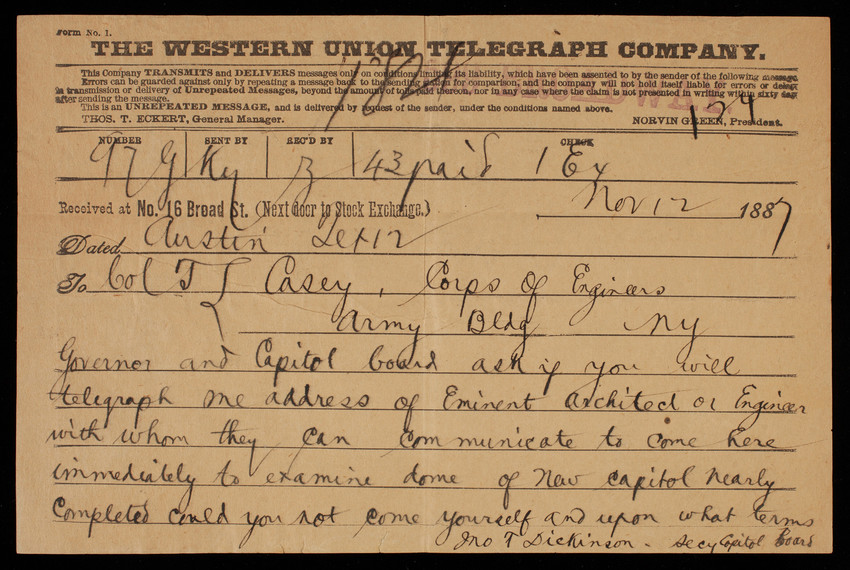 Form No. 1.
THE WESTERN UNION TELEGRAPH COMPANY.
This Company TRANSMITS and DELIVERS messages only on conditions limiting its liability, which have been assented to by the sender of the following message.
Errors can be guarded against only by repeating a message back to the sending station for comparison, and the company will not hold itself liable for errors or delays
in transmission or delivery of Unrepeated Messages, beyond the amount of tolls paid thereon, nor in any case where the claim is not presented in writing within sixty days
after sending the message.
This is an UNREPEATED MESSAGE, and is delivered by request of the sender, under the conditions named above.
THOS. T. ECKERT, General Manager. NORVIN GREEN, President.
NUMBER SENT BY REC'D BY CHECK
97 Ky 43 paid 1 Ex
Received at No. 16 Broad St. (Next door to Stock Exchange.) Nov 12 1887
Dated Austin Tex 12
To Col T L Casey, Corps of Engineers
Army Bldg NY
Governor and Capitol board ask if you will
telegraph me address of Eminent architect or Engineer
with whom they can communicate to come here
immediately to examine dome of New capitol nearly
completed could you not come yourself and upon what terms
Jno T Dickinson - Secy Capitol board